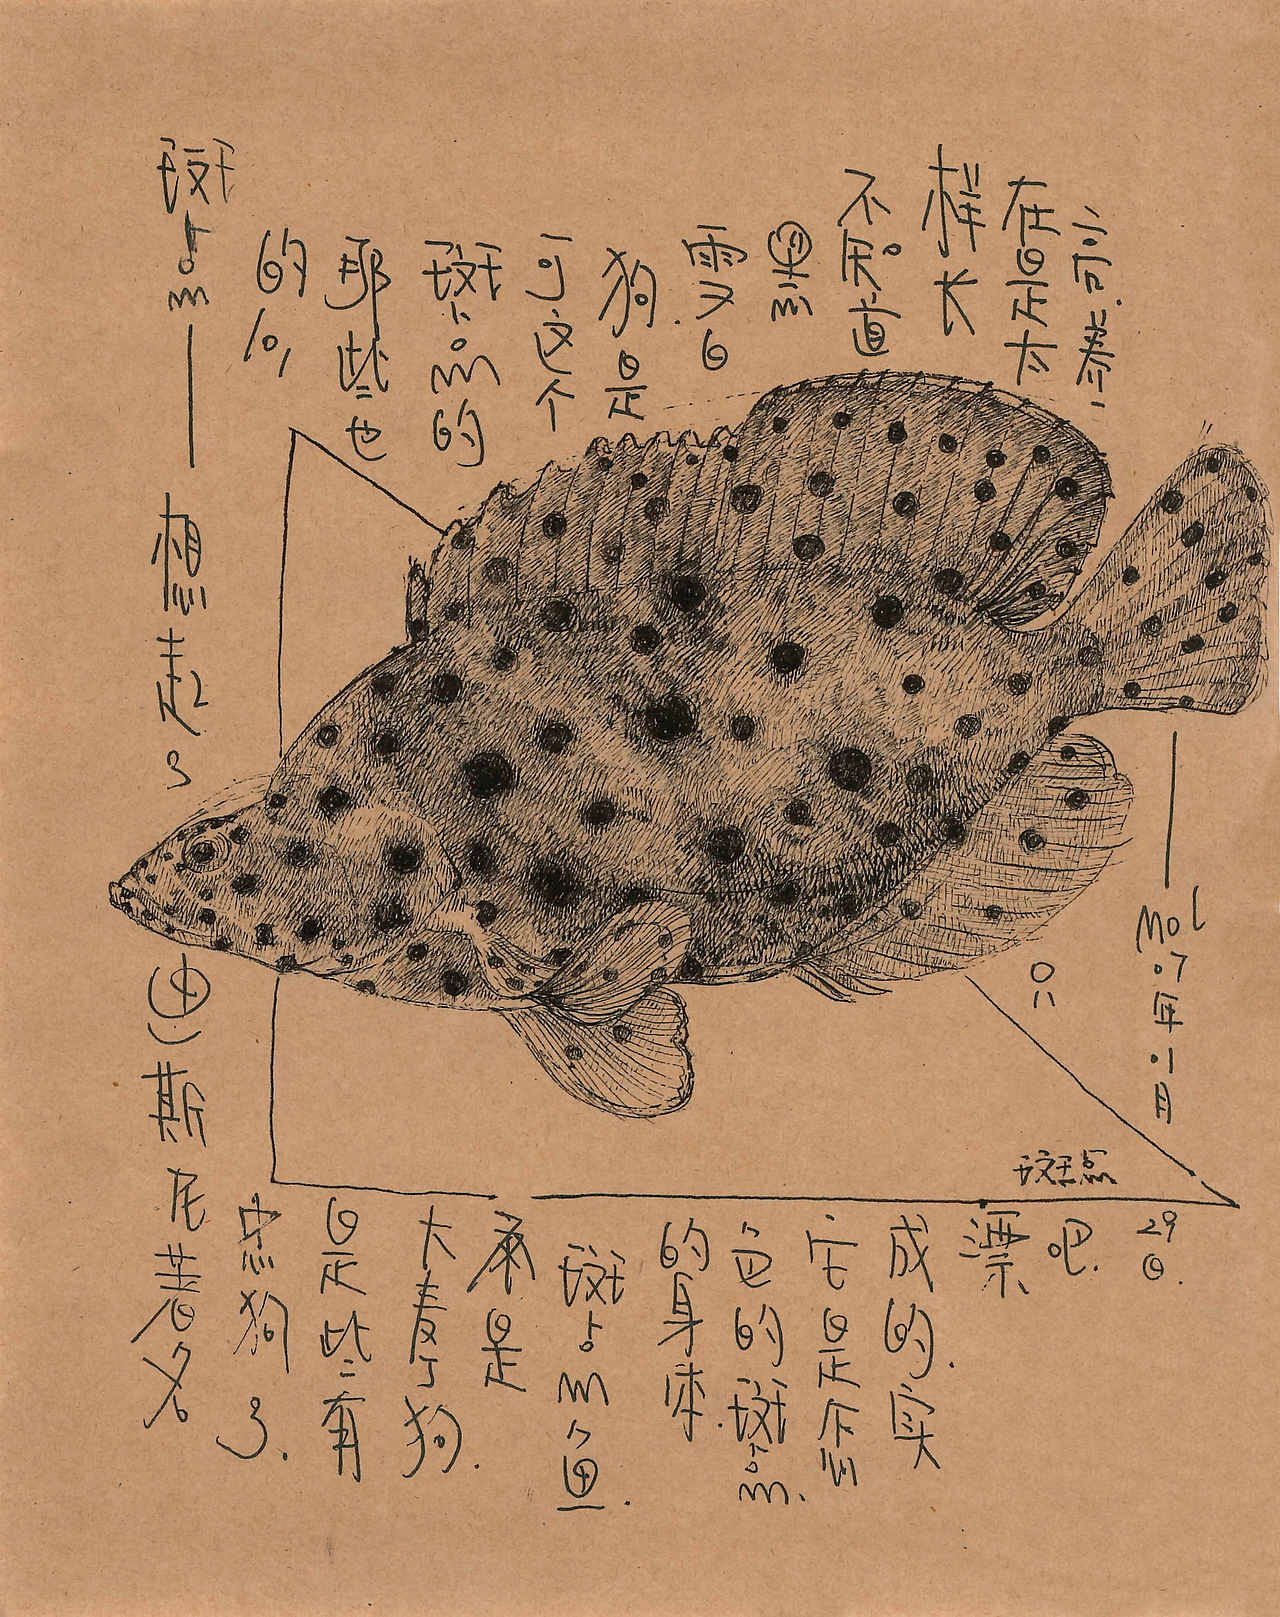 斑点——想起了迪斯尼著名
的101忠狗了.
那些也是些有
斑点的大麦丁狗.
可这个是
狗.是斑点鱼.
雪白的身体.
黑色的斑点.
不知道它是怎
样长成的.实
在是太漂
亮.养一只吧.
——Mol 07年01月29日.
斑点